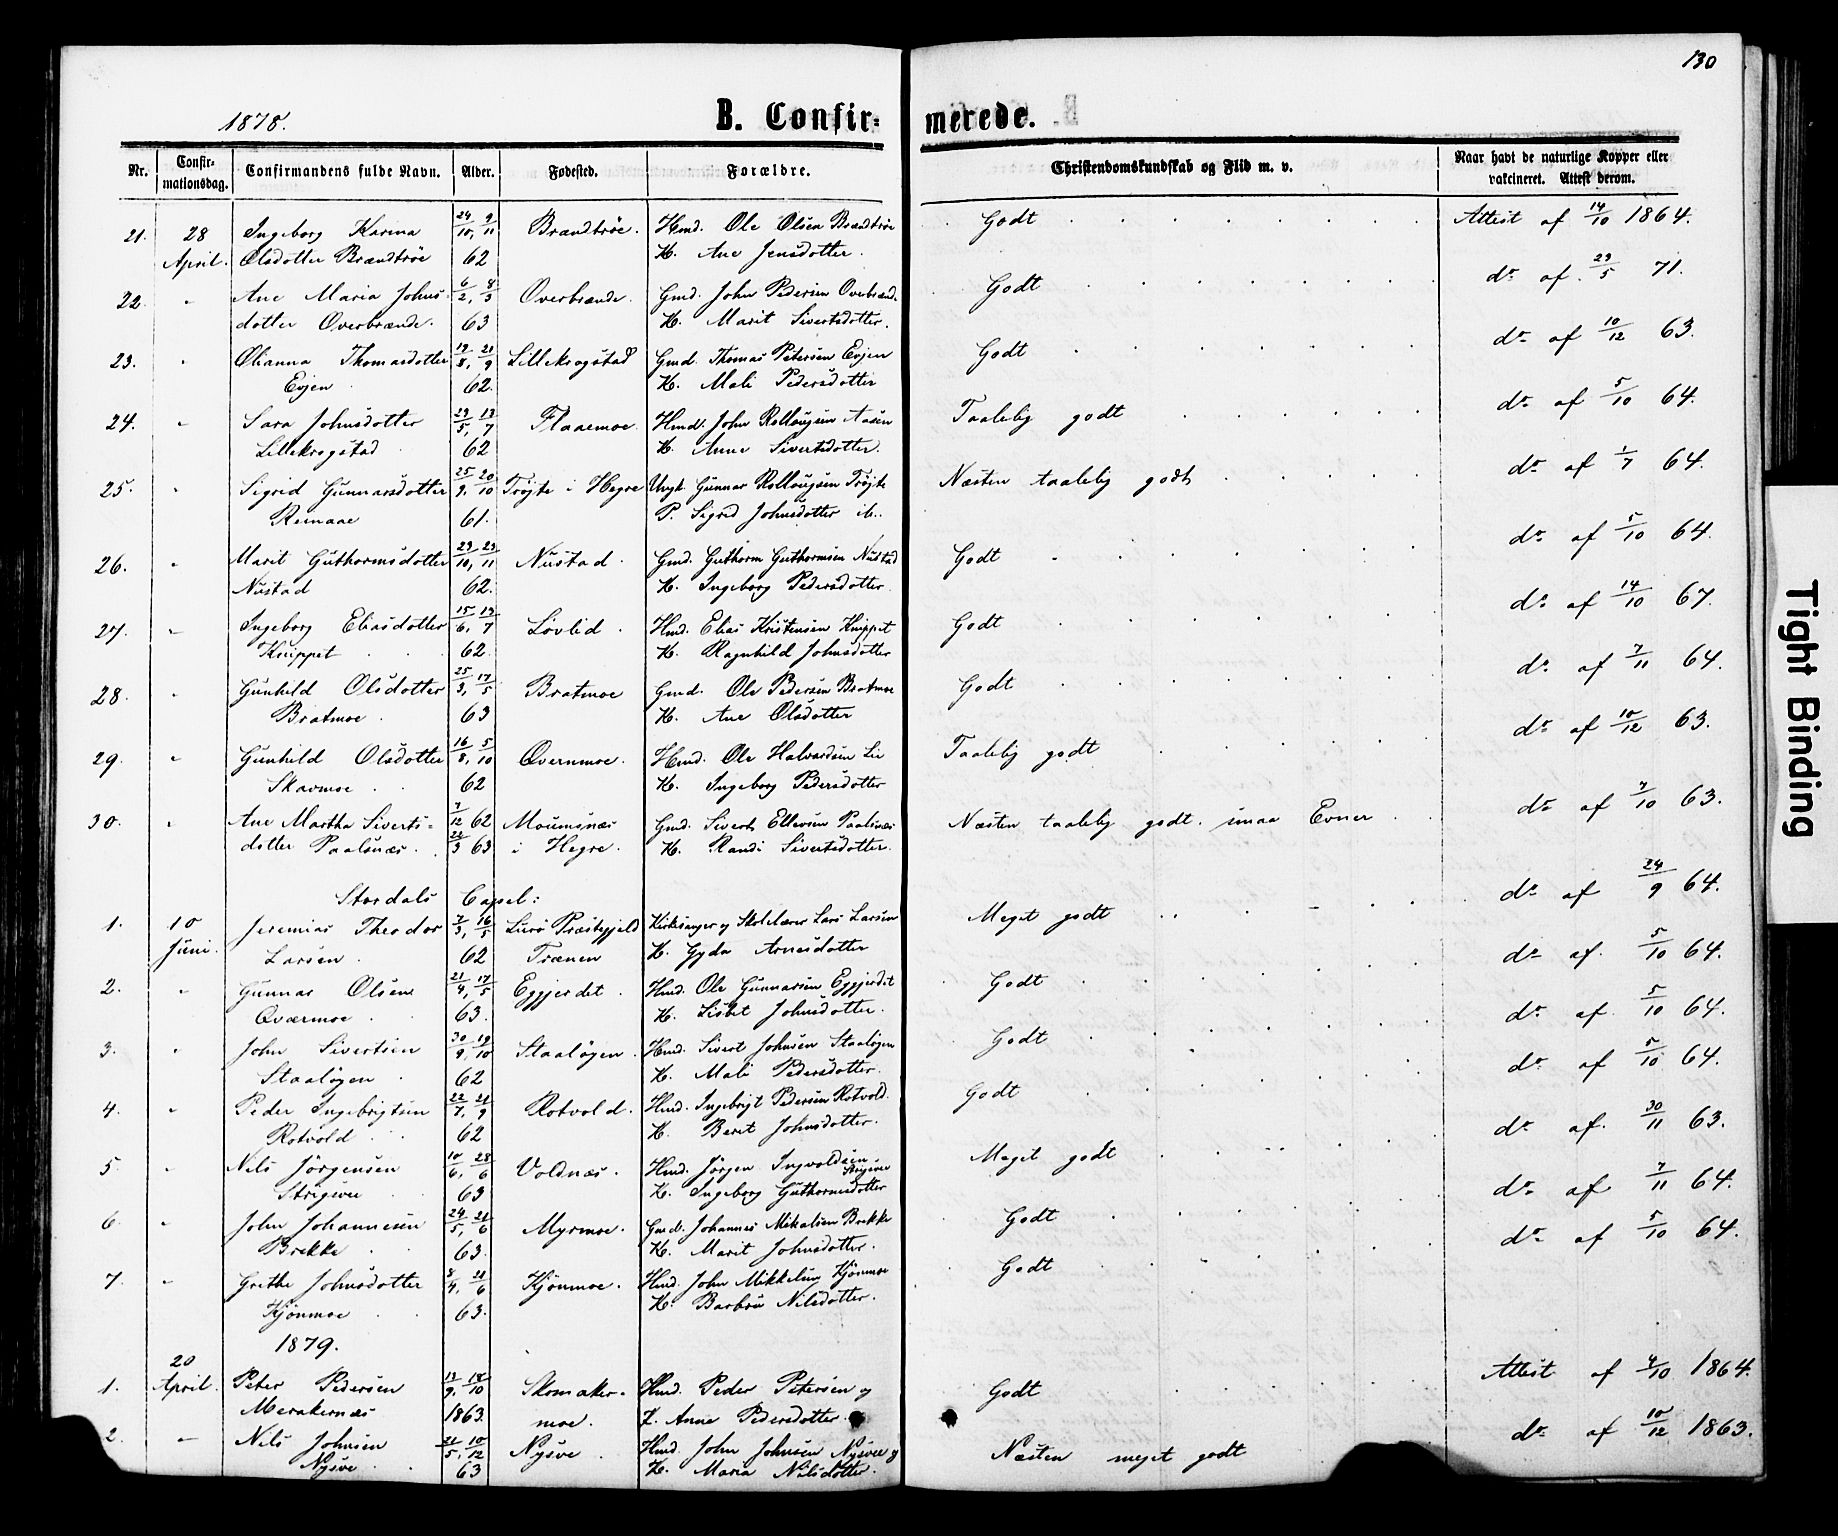 130
1878.
B. Confir-
merede.
Nr.
Confir-
mationsdag.
Confirmandens fulde Navn.
Alder.
Fødested.
Forældre.
Christendomskundskab og Flid m. v.
Naar havt de naturlige Kopper eller
vakcineret. Attest derom.
21. 28 Ingeborg Karina 24/10, 9/11 Brandtröe. Hmd. Ole Olsen Brandtröe Godt Attest af 14/10 1864.
April. Olsdotter Brandtröe 62 K. Ane Jensdotter.
22. " Ane Maria Johns- 6/2, 8/3 Overbrande. Gmd. John Pedersen Overbrand. Godt do af 23/5 71.
dotter Overbrande. 63 K. Marit Sivertsdotter.
23. " Olianna Thomasdotter 19/8, 21/9 Lillekrogstad Gmd. Thomas Petersen Evjen Godt do af 10/12 63.
Evjen 62. K. Mali Pedersdotter
24. " Sara Johnsdotter 23/5, 13/7 Flaaemoe Hmd. John Rollougsen Aasen Taalelig godt do af 5/10 64.
Lillekrogstad 62 K. Anne Sivertsdotter.
25. " Sigrid Gunnarsdotter 25/9, 20/10 Tröjte i Hegre Ungk. Gunnar Rollougsen Tröjte Næsten taalelig godt do af 1/7 64.
Reinaae 61. P. Sigrid Johnsdotter ib.
26. " Marit Guthormsdotter 23/10, 23/11 Nustad. Gmd. Guthorm Guthormsen Nustad Godt do af 5/10 64.
Nustad 62. K. Ingeborg Pedersdotter
27. " Ingeborg Eliasdotter 15/6, 13/7 Lövlid. Hmd. Elias Kristensen Knippet Godt do af 14/10 67.
Knippet 62. K. Ragnhild Johnsdotter
28. " Gunhild Olsdotter 25/3, 17/5 Bratmoe Gmd. Ole Pedersen Bratmoe Godt do af 7/11 64.
Bratmoe. 63 K. Ane Olsdotter
29. " Gunhild Olsdotter 16/8, 5/10 Overnmoe. Hmd. Ole Halvardsen Lie Taalelig godt do af 10/12 63.
Skavmoe 62 K. Ingeborg Pedersdotter
30. " Ane Martha Siverts- 7/12 62 Moumsnæs Gmd. Sivert Ellevsen Paalsnæs Næsten taalelig godt. smaa Evner do af 7/10 63.
dotter Paalsnæs. 22/3 63 i Hegre. K. Randi Sivertsdotter.
Stordals Capel:
1. 10 Jeremias Theodor 7/3, 16/5 Lurö Præstegjeld Kirkesanger og Skolelærer Lars Larsen Meget godt do af 24/9 64.
Juni. Larsen 62 Trænen K. Gyda Arnesdotter
2. " Gunnar Olsen 21/4, 17/5 Eggjerdet. Hmd. Ole Gunnarsen Eggjerdet Godt do af. 5/10 64.
Qværmoe 63. K. Lisbet Johnsdotter.
3. " John Sivertsen 30/9, 19/10 Staalögen. Hmd. Sivert Johnsen Staalögen Godt do af. 5/10 64.
Staalögen 62 K. Mali Pedersdotter.
4. " Peder Ingebrigtsen 22/7, 21/9 Rotvold. Hmd. Ingebrigt Pedersen Rotvold. Godt do af 5/10 64.
Rotvold 62 K. Beret Johnsdotter.
5. " Nils Jörgensen 10/6, 28/6 Voldnæs. Hmd. Jörgen Ingvoldsen Strigsvee Meget godt do af. 30/11 63.
Strigsvee 63 K. Ingeborg Guthormsdotter
6. " John Johannesen 24/5, 21/6 Myrmoe. Gmd. Johannes Mikalsen Brekke Godt do af 7/11 64.
Brekke 63. K. Marit Johnsdotter.
7. " Grethe Johnsdotter 8/4, 21/6 Kjönmoe. Hmd. John Mikkelsen Kjönmoe Godt do af 5/10 64.
Kjönmoe 63. K. Barbro Nilsdotter.
1879.
20
1. April. Peter Pedersen 13/9, 18/10 Skomaker- Hmd. Peder Petersen og Godt Attest af 4/10 1864.
Merakernæs 1863. moe. K. Anne Pedersdotter.
2. " Nils Johnsen 21/5, 10/12 Nysve Hmd. John Johnsen Nysvee og Næsten meget godt do af 10/12 1863.
Nysve 63 K. Maria Nilsdotter.
Tight Binding